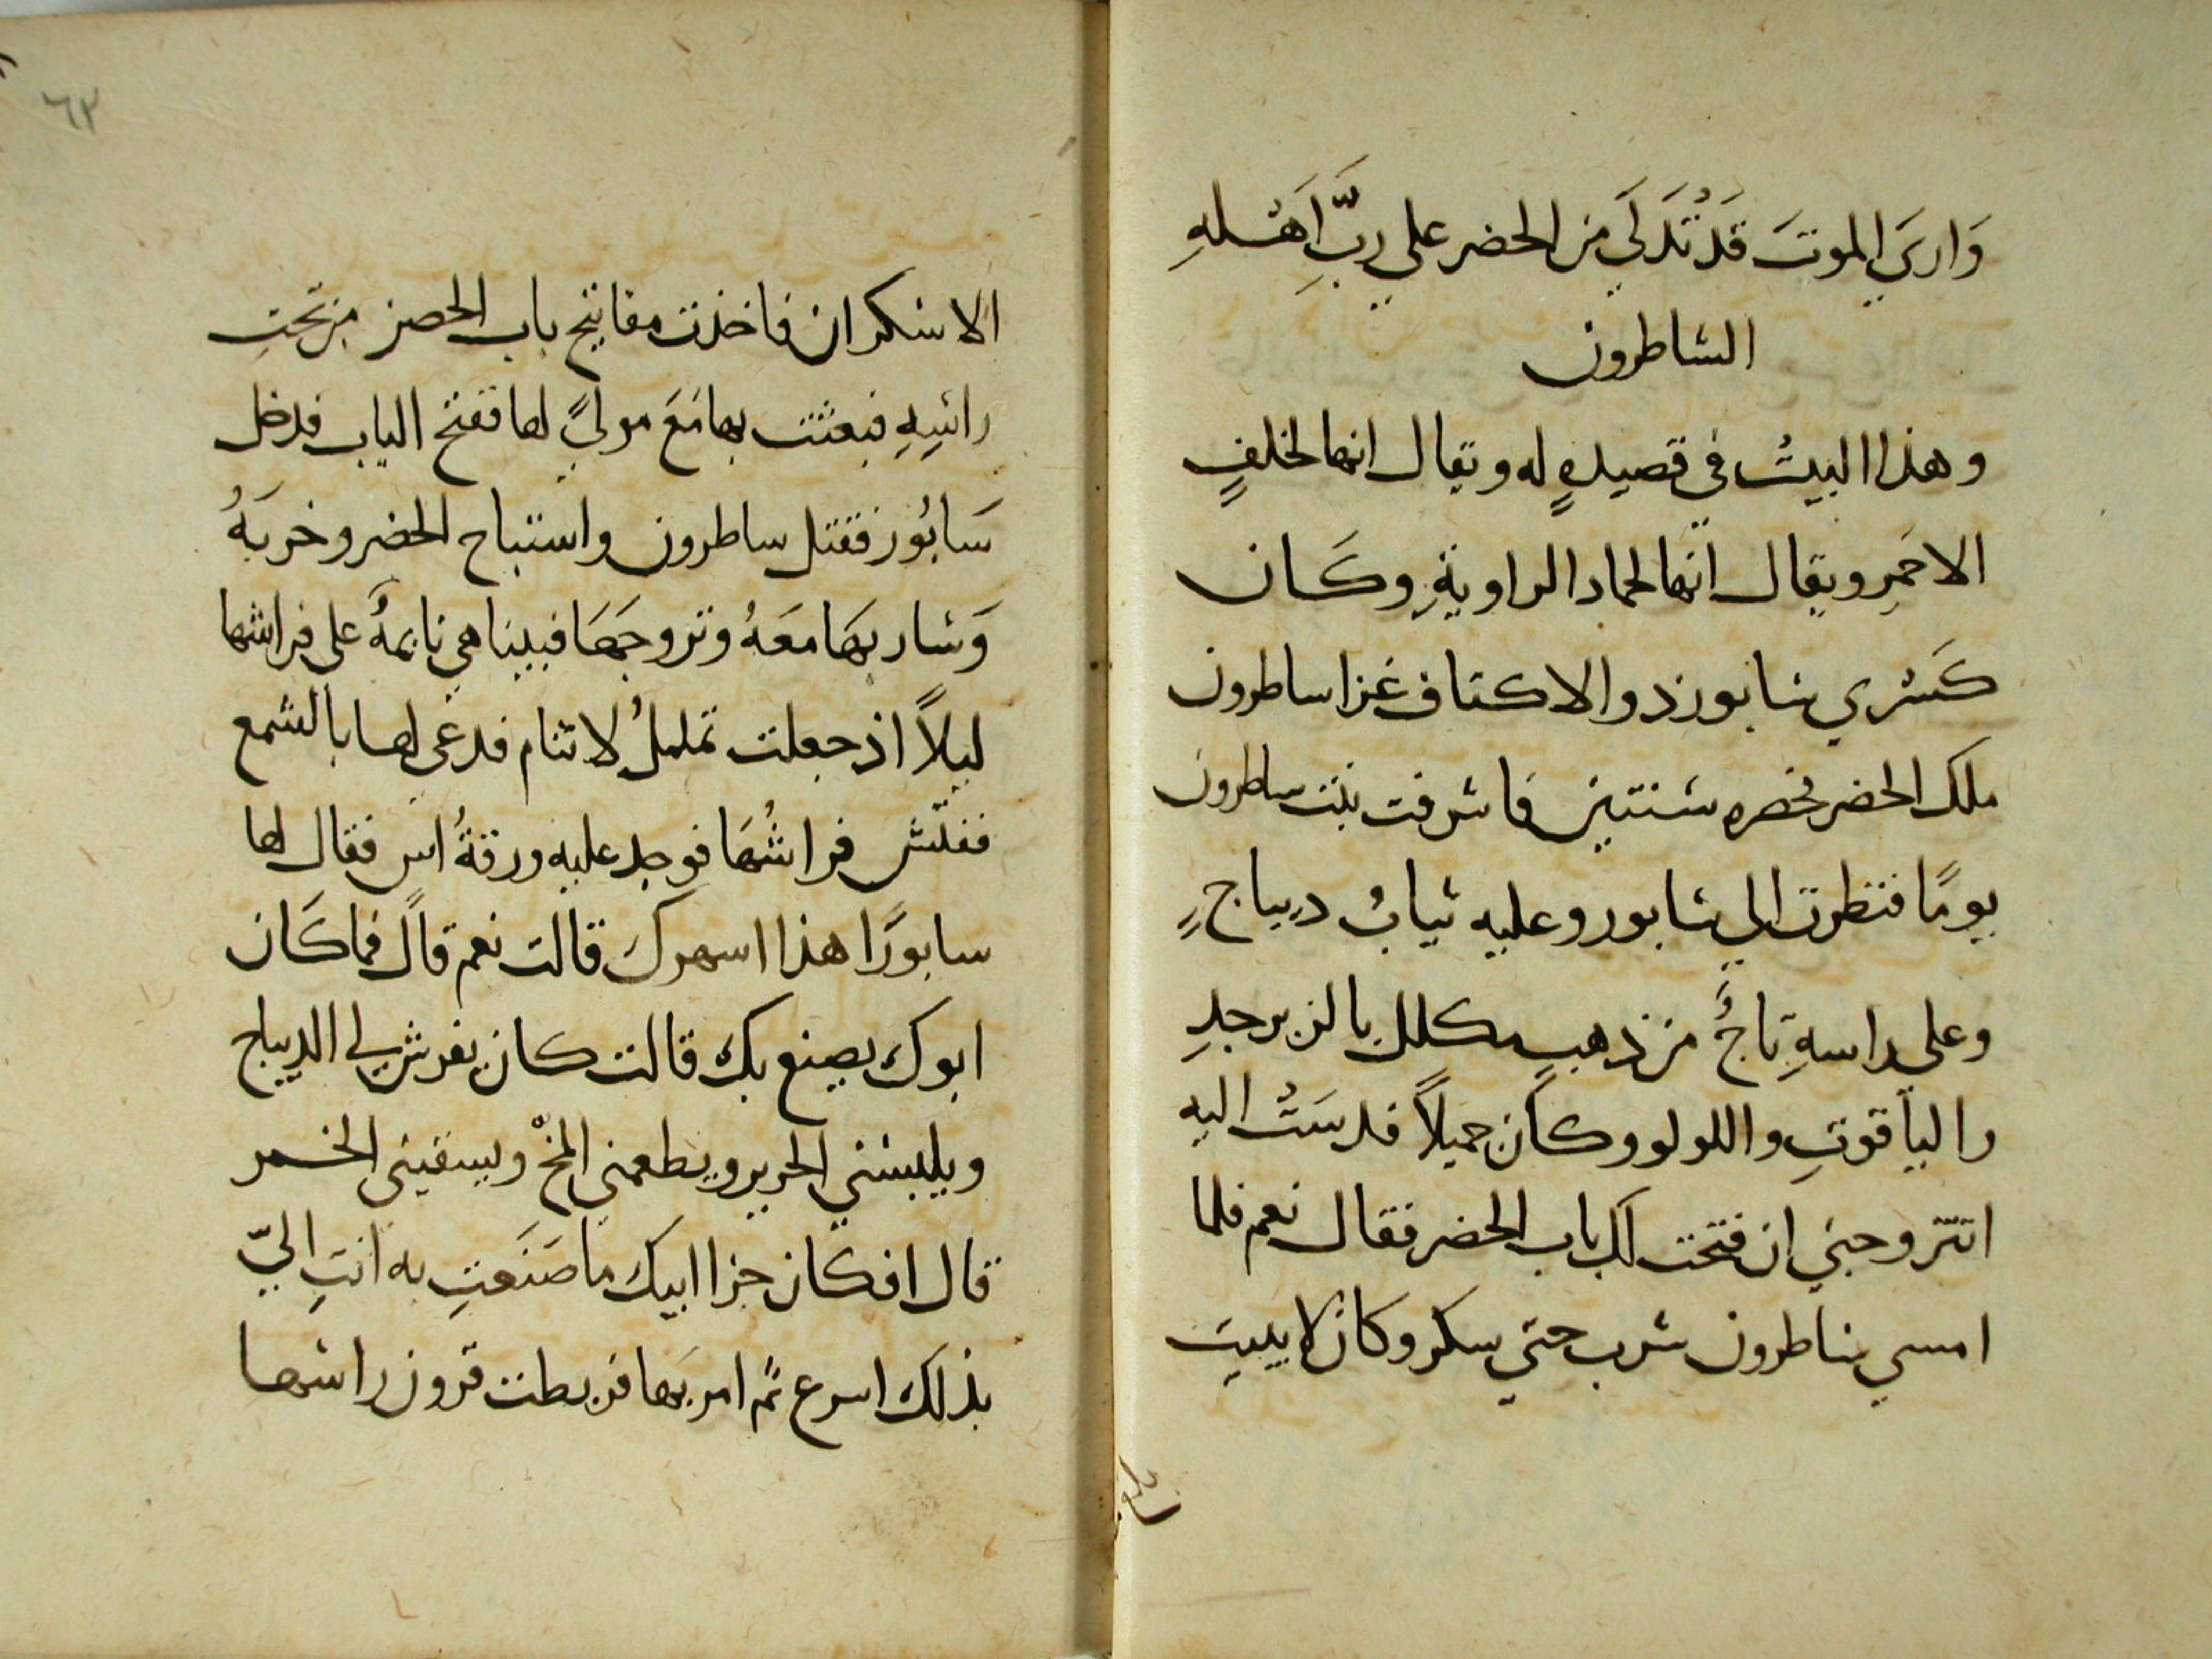 وَارىَ الموتَ قَد تُدَلَي من الحضر علي ربِّ اَهْلهِ
الساطرون
وهذا البيت في قصيدهٍ له ويقال انها لخلفٍ
الاحمرِ ويقال انها لحماد الراويةِ وكَان
كَسْري سابور ذو الاكتاف غزا ساطرون
ملك الحضر فحصره سنتين فاشرفت بنت ساطرون
يومًا فنظرت الي سابور وعليه ثيابُ ديباجٍ
وعلي راسهِ تاجٌ من ذهبٍ مكلل بالزبرجدِ
والياقوتِ واللولو وكان جميلاً فدسَتْ اليه
اتتزوجني ان فتحت لك باب الحضر فقال نعم فلما
امسي ساطرون شرب حتي سكر وكان لا يبيت
٦٣
الا سكران فاخذت مفاتيح باب الحصن من تحتِ
راسِهِ فبعثت بها مَعَ موليً لها ففتح الباب فدخل
سَابُور فقتل ساطرون واستباح الحضر وخربَهُ
وَسار بهَا معَهُ وتزوجَهَا فبينا هي نايمهٌ علي فراشها
ليلاً اذ جعلت تململُ لا تنام فدعي لها بالشمع
ففتّش فراشُهَا فوجد عليه ورقةُ اس فقال لها
سابور اَهذا اسهرك قالت نعم قالَ فما كَان
ابوك يصنع بك قالت كان يفرش لي الديباج
ويلبسني الحرير ويطعمني المخْ ويسقيني الخمر
قال افكان جزا ابيك ما صَنَعتِ به انتِ اليّ
بذلك اسرع ثم امر بَها فربطت قرون راسها